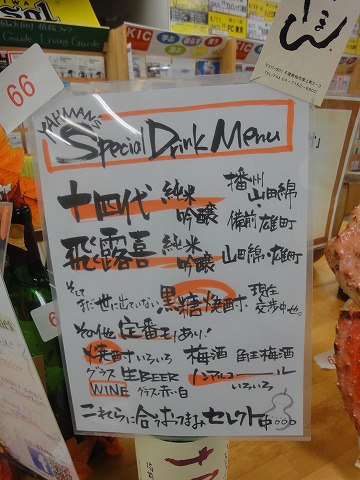 66
YAHMAN'S
Special Drink Menu
十四代 純米吟醸 播州山田錦・備前雄町
飛露喜 純米吟醸 山田錦・雄町
そしてまだ世に出ていない黒糖焼酎 現在交渉中せ。
その他定番モノあり!
焼酎いろいろ 梅酒 角玉梅酒
グラス 生BEER ノンアルコール いろいろ
WINE グラス 赤・白
これらに合うおつまみセレクト中・・・
KIC
Guide Living Guide